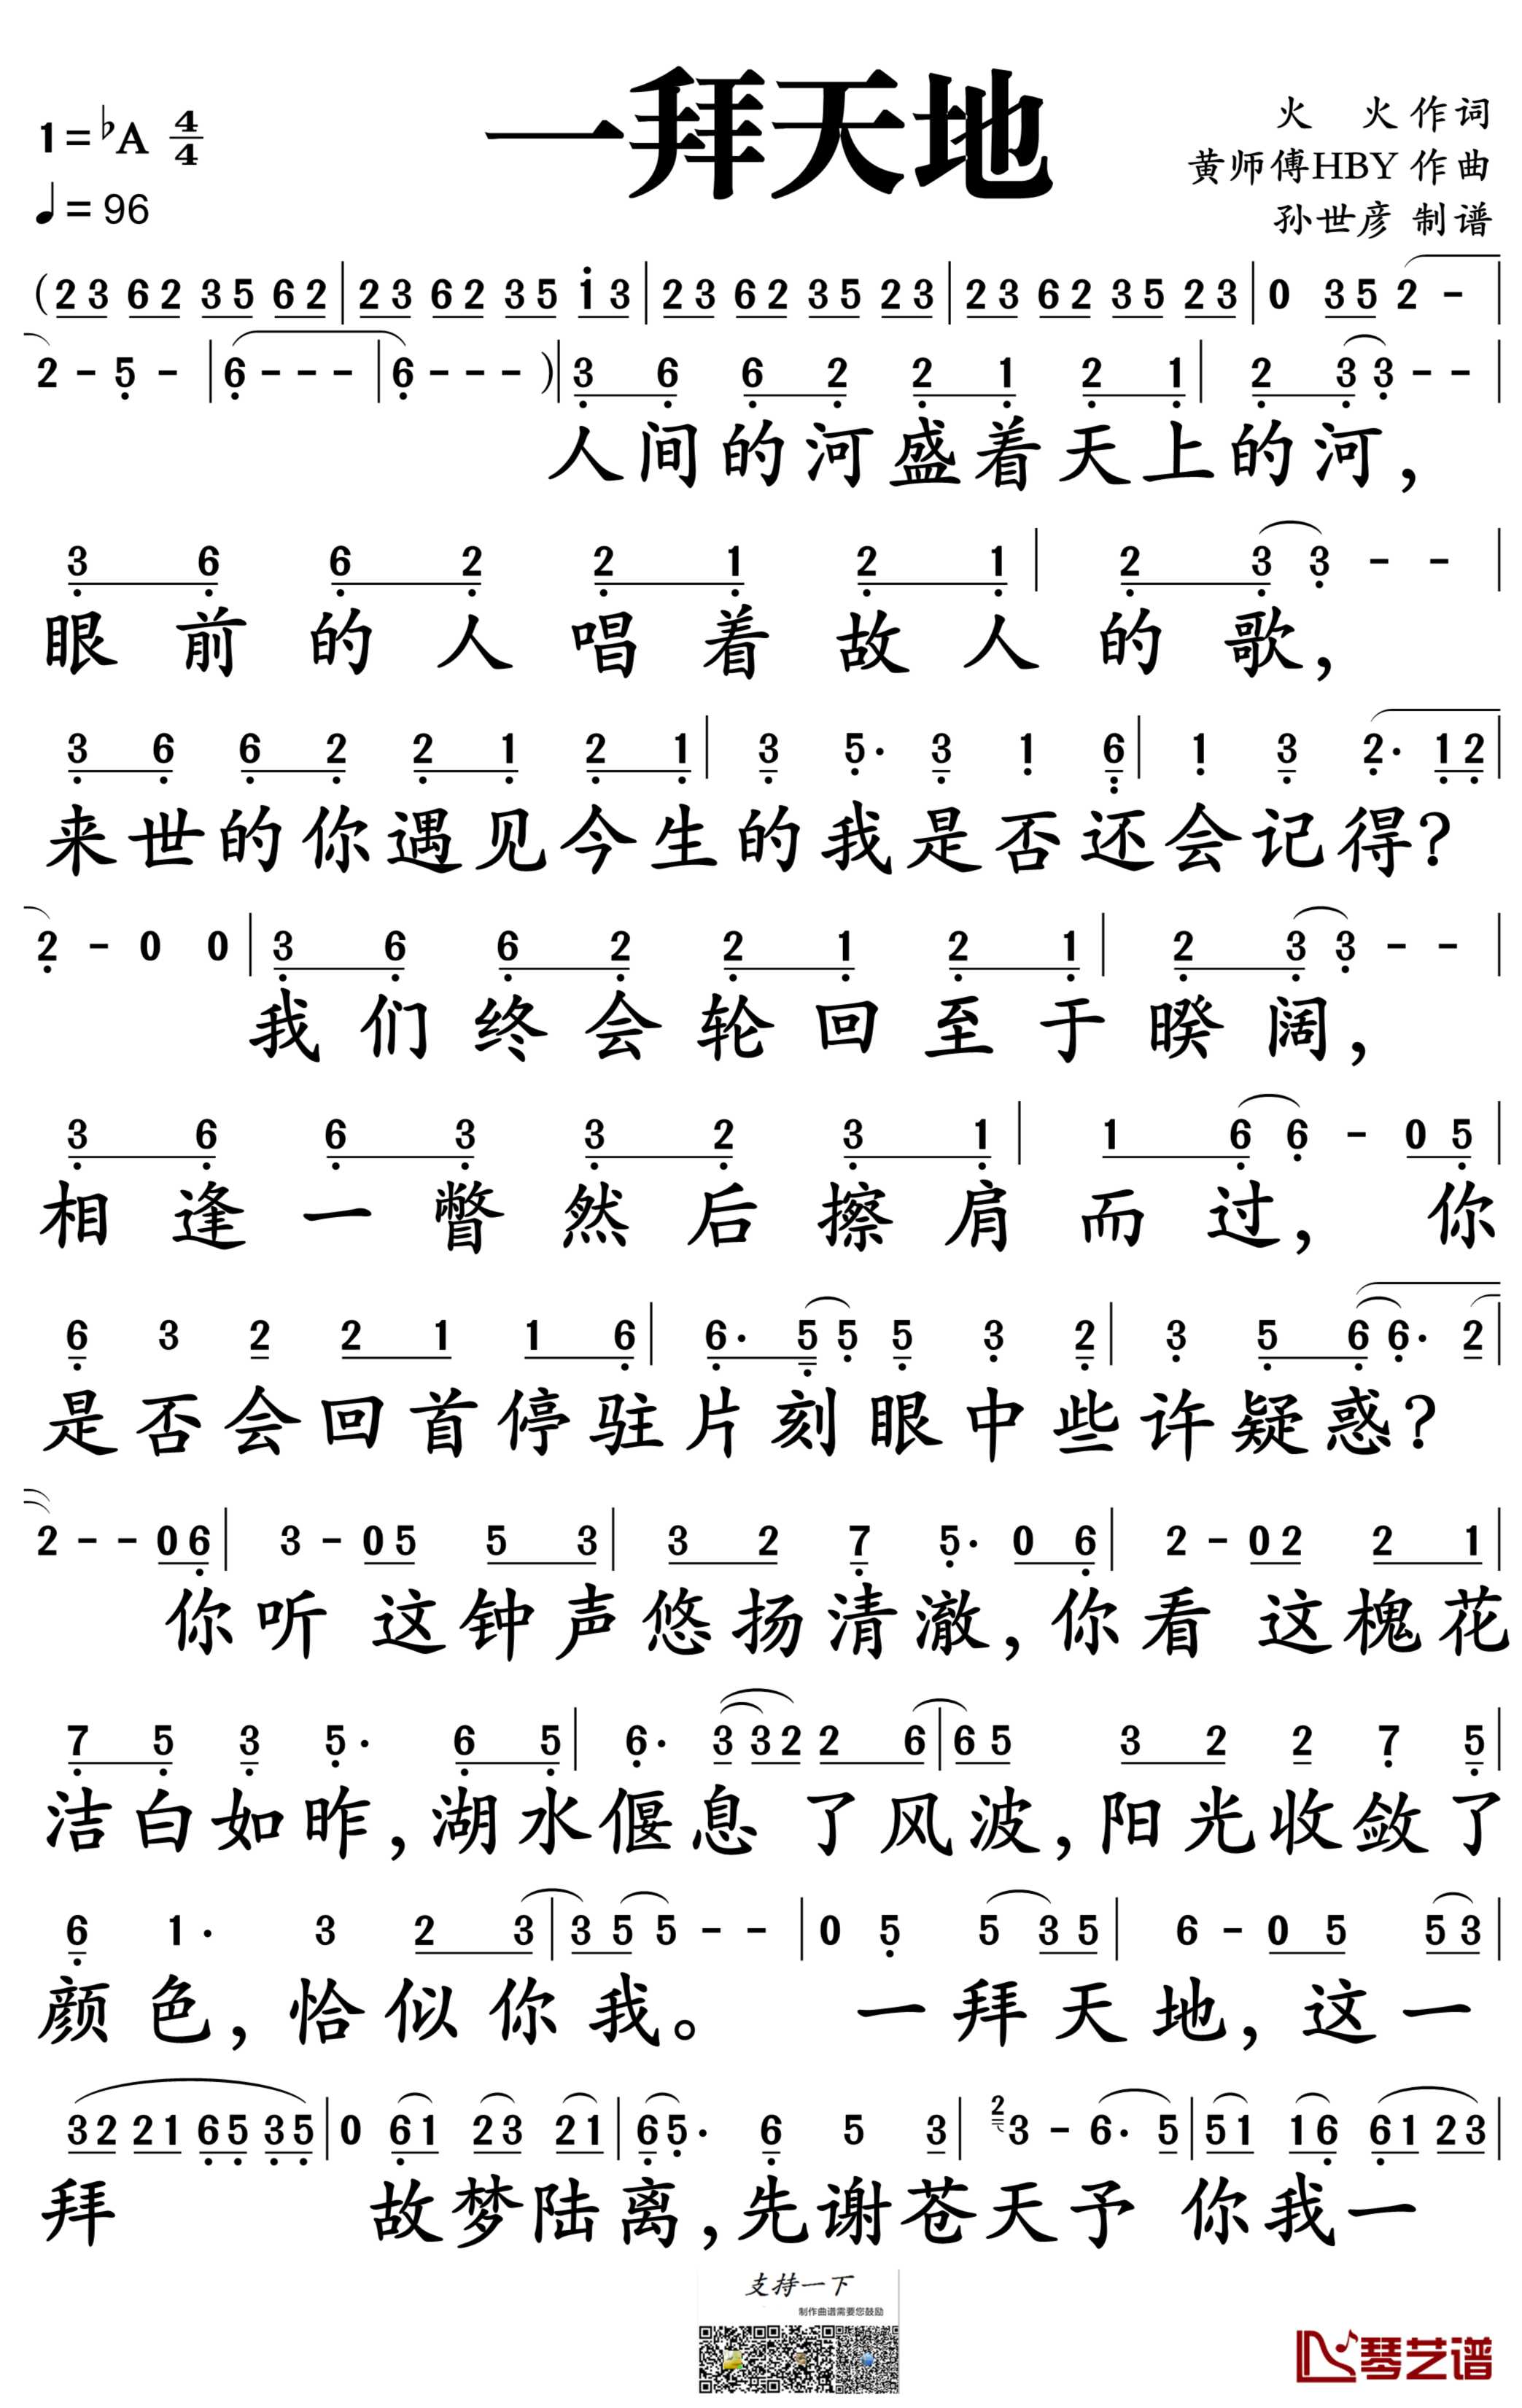 一拜天地
1=♭A 4/4
♩=96
火 火 作词
黄师傅HBY 作曲
孙世彦 制谱
(23 62 35 62|23 62 35 i3|23 62 35 23|23 62 35 23|0 35 2 -|
2 - 5 -|6 - - -|6 - - -)|3 6 6 2 2 1 2 1|2 3 3 - -|
人间的河盛着天上的河,
3 6 6 2 2 1 2 1|2 3 3 - -|
眼前的人唱着故人的歌,
3 6 6 2 2 1 2 1|3 5· 3 1 6|1 3 2· 12|
来世的你遇见今生的我是否还会记得?
2 - 0 0|3 6 6 2 2 1 2 1|2 3 3 - -|
我们终会轮回至于暌阔,
3 6 6 3 3 2 3 1|1 6 6 - 0 5|
相逢一瞥然后擦肩而过, 你
6 3 2 2 1 1 6|6· 5 5 5 3 2|3 5 6 6· 2|
是否会回首停驻片刻眼中些许疑惑?
2 - - 06|3 - 05 5 3|3 2 7 5· 0 6|2 - 02 2 1|
你听 这钟声悠扬清澈,你看 这槐花
7 5 3 5· 6 5|6· 3 32 2 6|6 5 3 2 2 7 5|
洁白如昨,湖水偃息 了风波,阳光收敛了
6 1· 3 2 3|3 5 5 - -|0 5 5 35|6 - 0 5 53|
颜色,恰似你我。 一拜天地,这一
32 21 65 35|0 61 23 21|65· 6 5 3|2 3 - 6· 5|51 16 61 23|
拜 故梦陆离,先谢苍天予 你我一
支持一下
制作曲谱需要您鼓励
琴艺谱